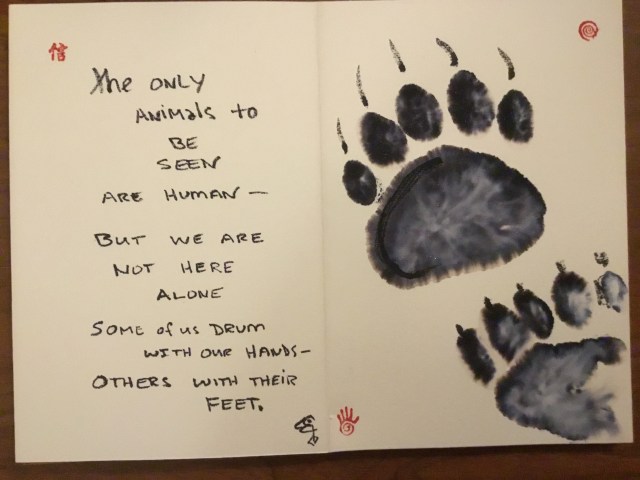 信
The ONLY
ANIMALS to
BE
SEEN
ARE HUMAN —
BUT WE ARE
NOT HERE
ALONE
SOME of US DRUM
WITH OUR HANDS—
OTHERS WITH THEIR
FEET.